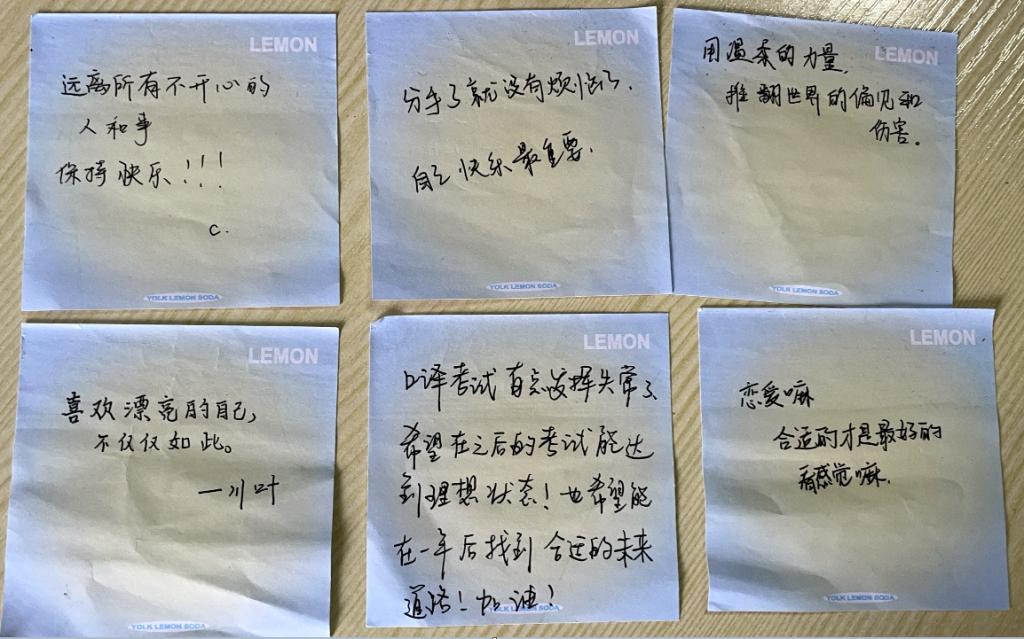 LEMON
远离所有不开心的
人和事
保持快乐!!!
C.
YOLK LEMON SODA
LEMON
分手了就没有烦恼了.
自己快乐最重要.
YOLK LEMON SODA
LEMON
用温柔的力量,
推翻世界的偏见和
伤害。
YOLK LEMON SODA
LEMON
喜欢漂亮的自己,
不仅仅如此。
—川叶
YOLK LEMON SODA
LEMON
口译考试有点发挥失常了
希望在之后的考试能达
到理想状态!也希望能
在一年后找到合适的未来
道路!加油!
YOLK LEMON SODA
LEMON
恋爱嘛
合适的才是最好的
看感觉嘛.
YOLK LEMON SODA